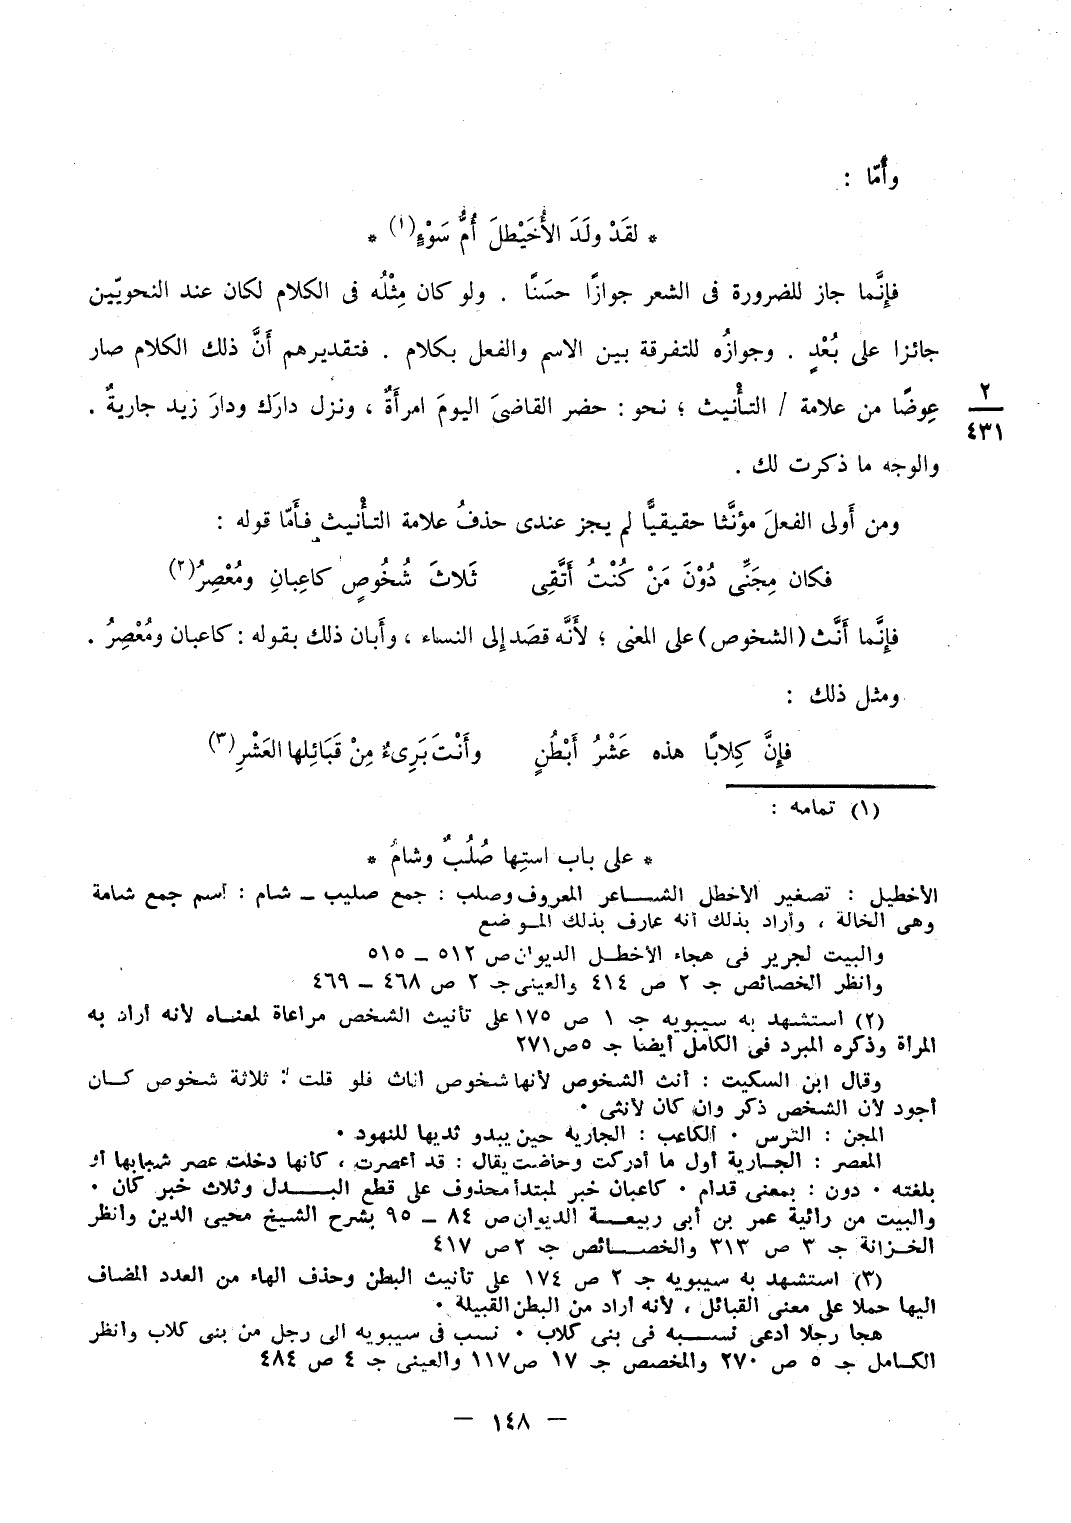 وأَمّا :
* لقَدْ ولَدَ الأُخَيْطلَ أُمُّ سَوْءٍ(١) *
فإِنَّما جاز للضرورة فى الشعر جوازًا حسَنًا . ولو كان مِثْلُه فى الكلام لكان عند النحويّين
جائزا على بُعْدٍ . وجوازُه للتفرقة بين الاسم والفعل بكلام . فتقديرهم أَنَّ ذلك الكلام صار
عِوضًا من علامة / التأْنيث ؛ نحو : حضر القاضىَ اليومَ امرأَةٌ ، ونزل دارَك ودارَ زيد جاريةٌ .
٢
٤٣١
والوجه ما ذكرت لك .
ومن أَولى الفعلَ مؤنَّثا حقيقيًّا لم يجز عندى حذفُ علامة التأْنيث فأَمّا قوله :
فكان مِجَنِّى دُوْنَ مَنْ كُنْتُ أَتَّقِى ثَلاثَ شُخُوصٍ كاعِبانِ ومُعْصِرُ(٢)
فإِنَّما أَنَّث (الشخوص) على المعنى ؛ لأَنَّه قصَد إلى النساء ، وأَبان ذلك بقوله : كاعبان ومُعْصِرُ .
ومثل ذلك :
فإِنَّ كِلابًا هذه عَشْرُ أَبْطُنٍ وأَنْتَ بَرِىءٌ مِنْ قَبَائِلها العَشْرِ(٣)
(١) تمامه :
* على باب استِها صُلُبٌ وشامُ *
الأخطيل : تصغير الأخطل الشاعر المعروف وصلب : جمع صليب – شام : اسم جمع شامة
وهى الخالة ، وأراد بذلك أنه عارف بذلك الموضع
والبيت لجرير فى هجاء الأخطل الديوان ص ٥١٢ – ٥١٥
وانظر الخصائص جـ ٢ ص ٤١٤ والعينى جـ ٢ ص ٤٦٨ – ٤٦٩
(٢) استشهد به سيبويه جـ ١ ص ١٧٥ على تأنيث الشخص مراعاة لمعناه لأنه أراد به
المرأة وذكره المبرد فى الكامل أيضا جـ ٥ ص ٢٧١
وقال ابن السكيت : أنث الشخوص لأنها شخوص اناث فلو قلت : ثلاثة شخوص كان
أجود لأن الشخص ذكر وان كان لأنثى .
المجن : الترس . الكاعب : الجارية حين يبدو ثديها للنهود .
المعصر : الجارية أول ما أدركت وحاضت يقال : قد أعصرت ، كأنها دخلت عصر شبابها أو
بلغته . دون : بمعنى قدام . كاعبان خبر لمبتدأ محذوف على قطع البدل وثلاث خبر كان .
والبيت من رائية عمر بن أبى ربيعة الديوان ص ٨٤ – ٩٥ بشرح الشيخ محيى الدين وانظر
الخزانة جـ ٣ ص ٣١٣ والخصائص جـ ٢ ص ٤١٧
(٣) استشهد به سيبويه جـ ٢ ص ١٧٤ على تأنيث البطن وحذف الهاء من العدد المضاف
اليها حملا على معنى القبائل ، لأنه أراد من البطن القبيلة .
هجا رجلا ادعى نسبه فى بنى كلاب . نسب فى سيبويه الى رجل من بنى كلاب وانظر
الكامل جـ ٥ ص ٢٧٠ والمخصص جـ ١٧ ص ١١٧ والعينى جـ ٤ ص ٤٨٤
— ١٤٨ —